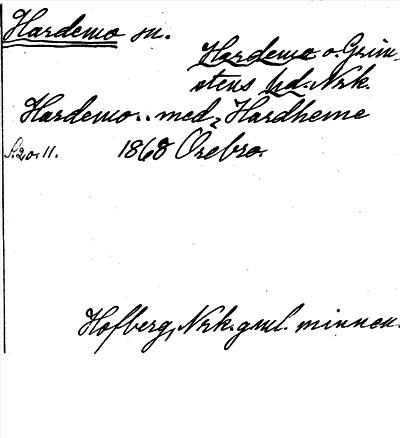 Hardemo sn.
Hardemo o. Grim-
stens hd. Nrk.
Hardemo.. med, Hardheme
S. 20. 11. 1868 Örebro.
Hofberg, Nrk. gml. minnen.